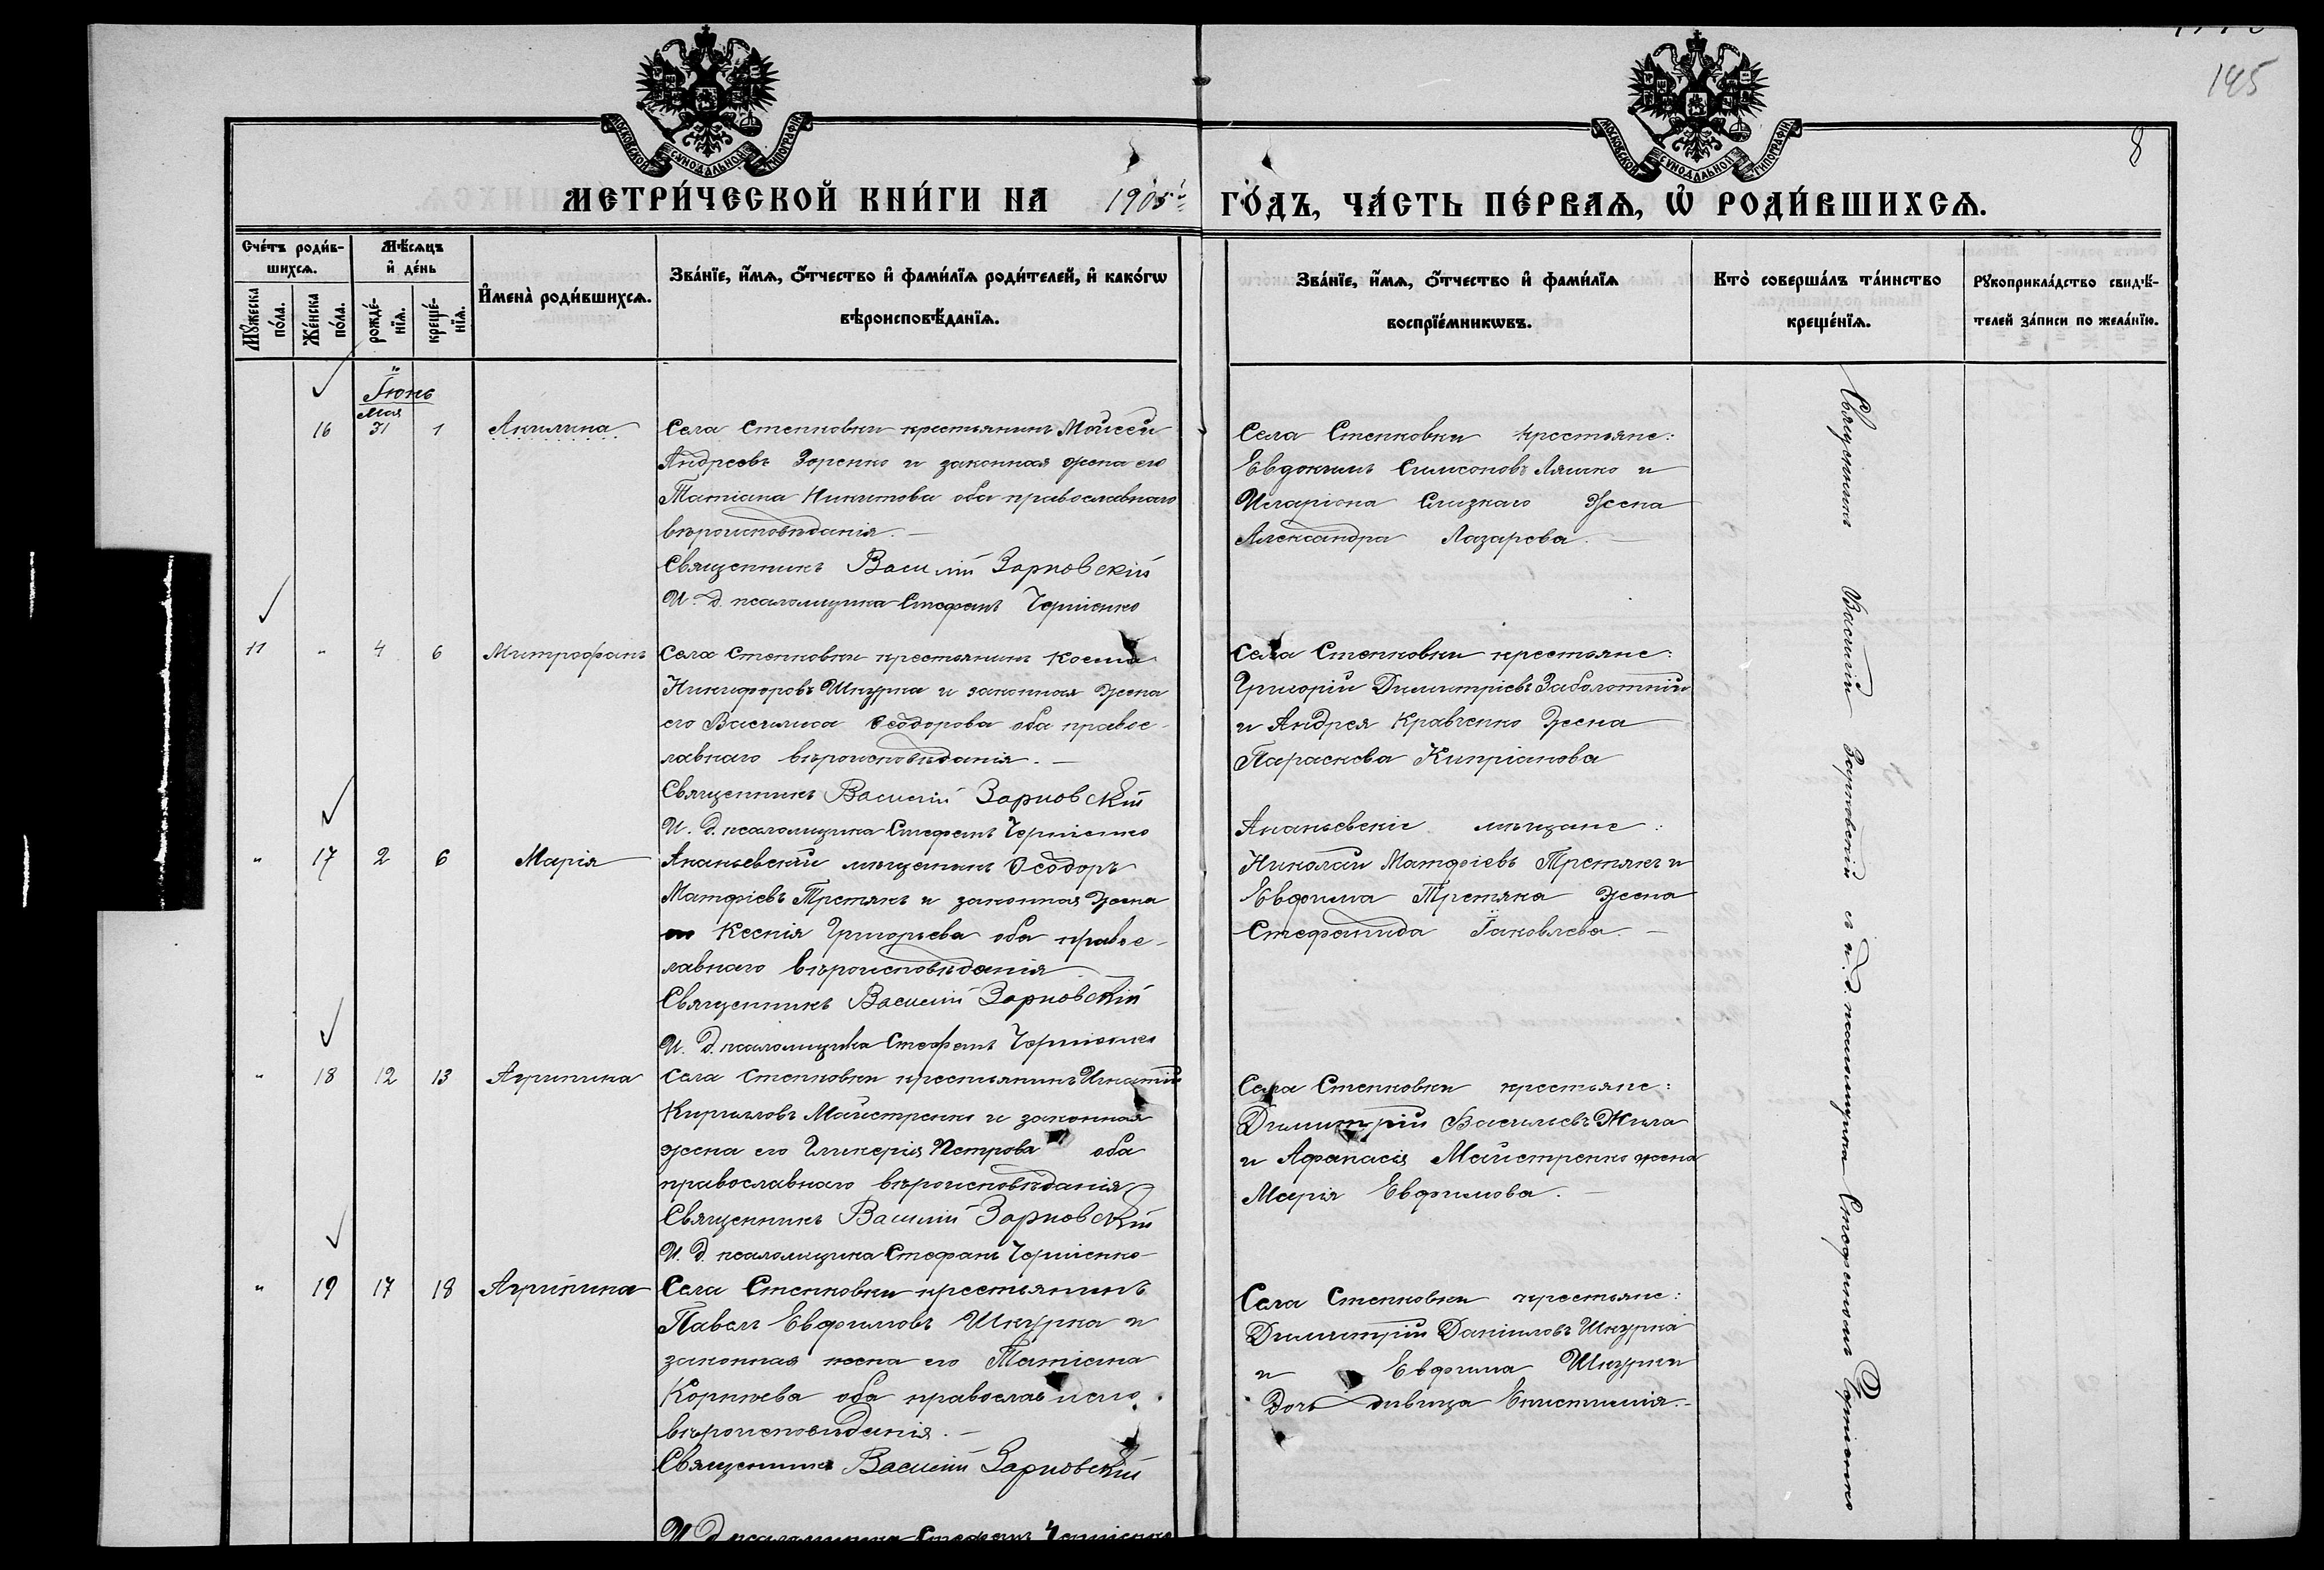 145
8
МОСКОВСКОЙ СѴНОДАЛЬНОЙ ТИПОГРАФІИ
МОСКОВСКОЙ СѴНОДАЛЬНОЙ ТИПОГРАФІИ
МЕТРИ́ЧЕСКОЙ КНИ́ГИ НА 1905й ГО́ДЪ, ЧА́СТЬ ПЕ́РВАѦ, Ѡ҆ РОДИ́ВШИХСѦ.
Сче́тъ роди́в-
шихсѧ.
Мꙋ́жеска по́ла.
Же́нска по́ла.
Мѣ́сѧцъ
и҆ де́нь
рожде́-нїѧ.
креще́-нїѧ.
И҆мена̀ роди́вшихсѧ.
Зва́нїе, и҆́мѧ, ѻ҆́тчество и҆ фами́лїѧ роди́телей, и҆ како́гѡ
вѣроисповѣ́данїѧ.
Зва́нїе, и҆́мѧ, ѻ҆́тчество и҆ фами́лїѧ
воспрїе́мникѡвъ.
Кто̀ соверша́лъ та́инство
креще́нїѧ.
Рꙋкоприкла́дство свидѣ́-
телей за́писи по жела́нїю.
Іюнь
Мая
16 31 1 Акилина
Села Степковки крестьянинъ Моисей
Андреевъ Зоренко и законная жена его
Татіана Никитова оба православнаго
вѣроисповѣданія. —
Священникъ Василій Зарновскій
И. д. псаломщика Стефанъ
Села Степковки крестьяне:
Евдокимъ Симеоновъ Ляшко и
Иларіона Слизкаго жена
Александра Лазарева. —
11 " 4 6 Митрофанъ
Села Степковки крестьянинъ Косма
Никифоровъ Шкурка и законная жена
его Василиса Ѳеодорова оба правос-
лавнаго вѣроисповѣданія. —
Священникъ Василій Зарновскій
И. д. псаломщика Стефанъ
Села Степковки крестьяне:
Григорій Димитріевъ Заболотній
и Андрея Кравченко жена
Параскева Кипріанова
" 17 2 6 Марія
Ананьевскій мѣщанинъ Ѳеодоръ
Матфіевъ Третякъ и законная жена
его Ксенія Григорьева оба правос-
лавнаго вѣроисповѣданія
Священникъ Василій Зарновскій
И. д. псаломщика Стефанъ
Ананьевскіе мѣщане:
Николай Матфіевъ Третякъ и
Евфима Третяка жена
Стефанида Іаковлева. —
" 18 12 13 Агрипина
Села Степковки крестьянинъ Игнатій
Кирилловъ Майстренко и законная
жена его Гликерія Петрова оба
православнаго вѣроисповѣданія
Священникъ Василій Зарновскій
И. д. псаломщика Стефанъ
Села Степковки крестьяне:
Димитрій Васильевъ Жила
и Афанасія Майстренко жена
Марія Евфимова. —
" 19 17 18 Агрипина
Села Степковки крестьянинъ
Павелъ Евфимовъ Шкурка и
законная жена его Татіана
Корніева оба православнаго
вѣроисповѣданія. —
Священникъ Василій Зарновскій
И. д. псаломщика Стефанъ
Села Степковки крестьяне:
Димитрій Даніиловъ Шкурка
и Евфима Шкурки
дочь дѣвица Епистимія. —
Священникъ Василій Зарновскій съ и. д. псаломщика Стефаномъ